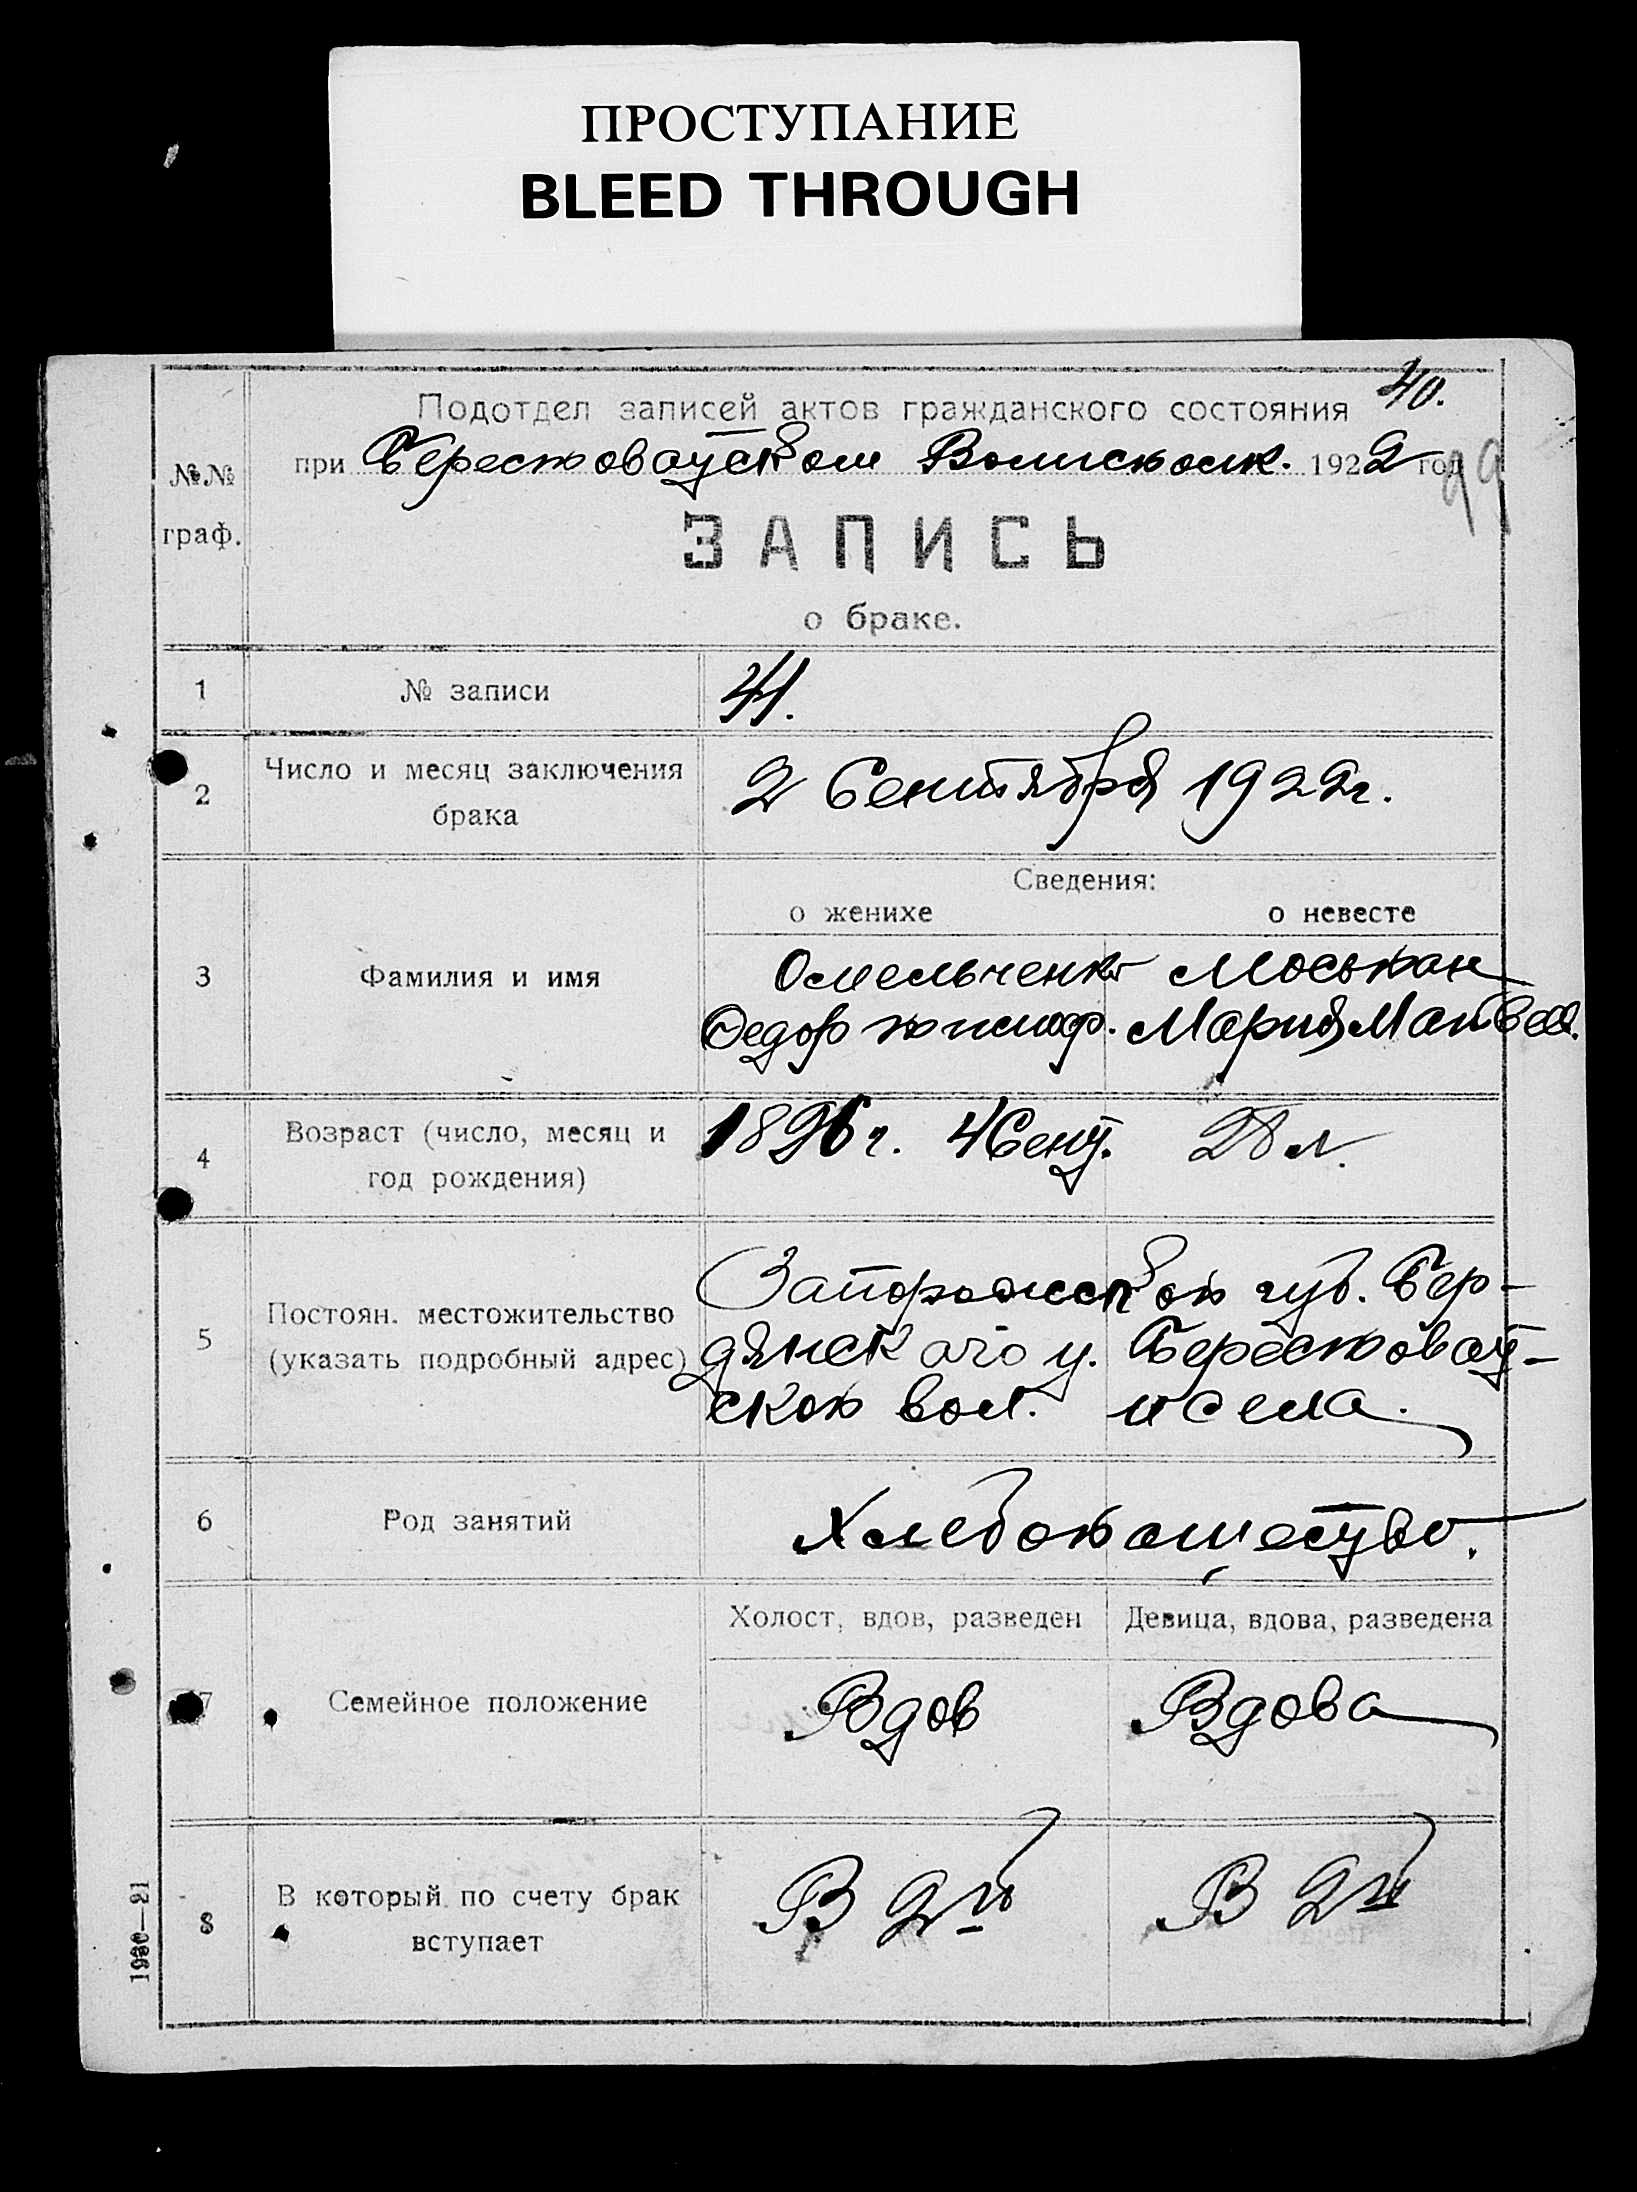 ПРОСТУПАНИЕ
BLEED THROUGH
40.
Подотдел записей актов гражданского состояния
№№ граф.
при Берестоватском Волисполк. 1922 год
99
ЗАПИСЬ
о браке.
1 № записи 41.
2 Число и месяц заключения брака 2 Сентября 1922г.
Сведения:
о женихе о невесте
3 Фамилия и имя
Омельченко Моськан
Федор Мария Матвеев.
4 Возраст (число, месяц и год рождения) 1896 г. 4 Сент. 28 л.
5 Постоян. местожительство (указать подробный адрес)
Запорожской губ. Бер-
дянского у. Берестоват-
ской вол. и села.
6 Род занятий Хлебопашество.
Холост, вдов, разведен Девица, вдова, разведена
7 Семейное положение Вдов Вдова
8 В который по счету брак вступает В 2й В 2й
1930—21